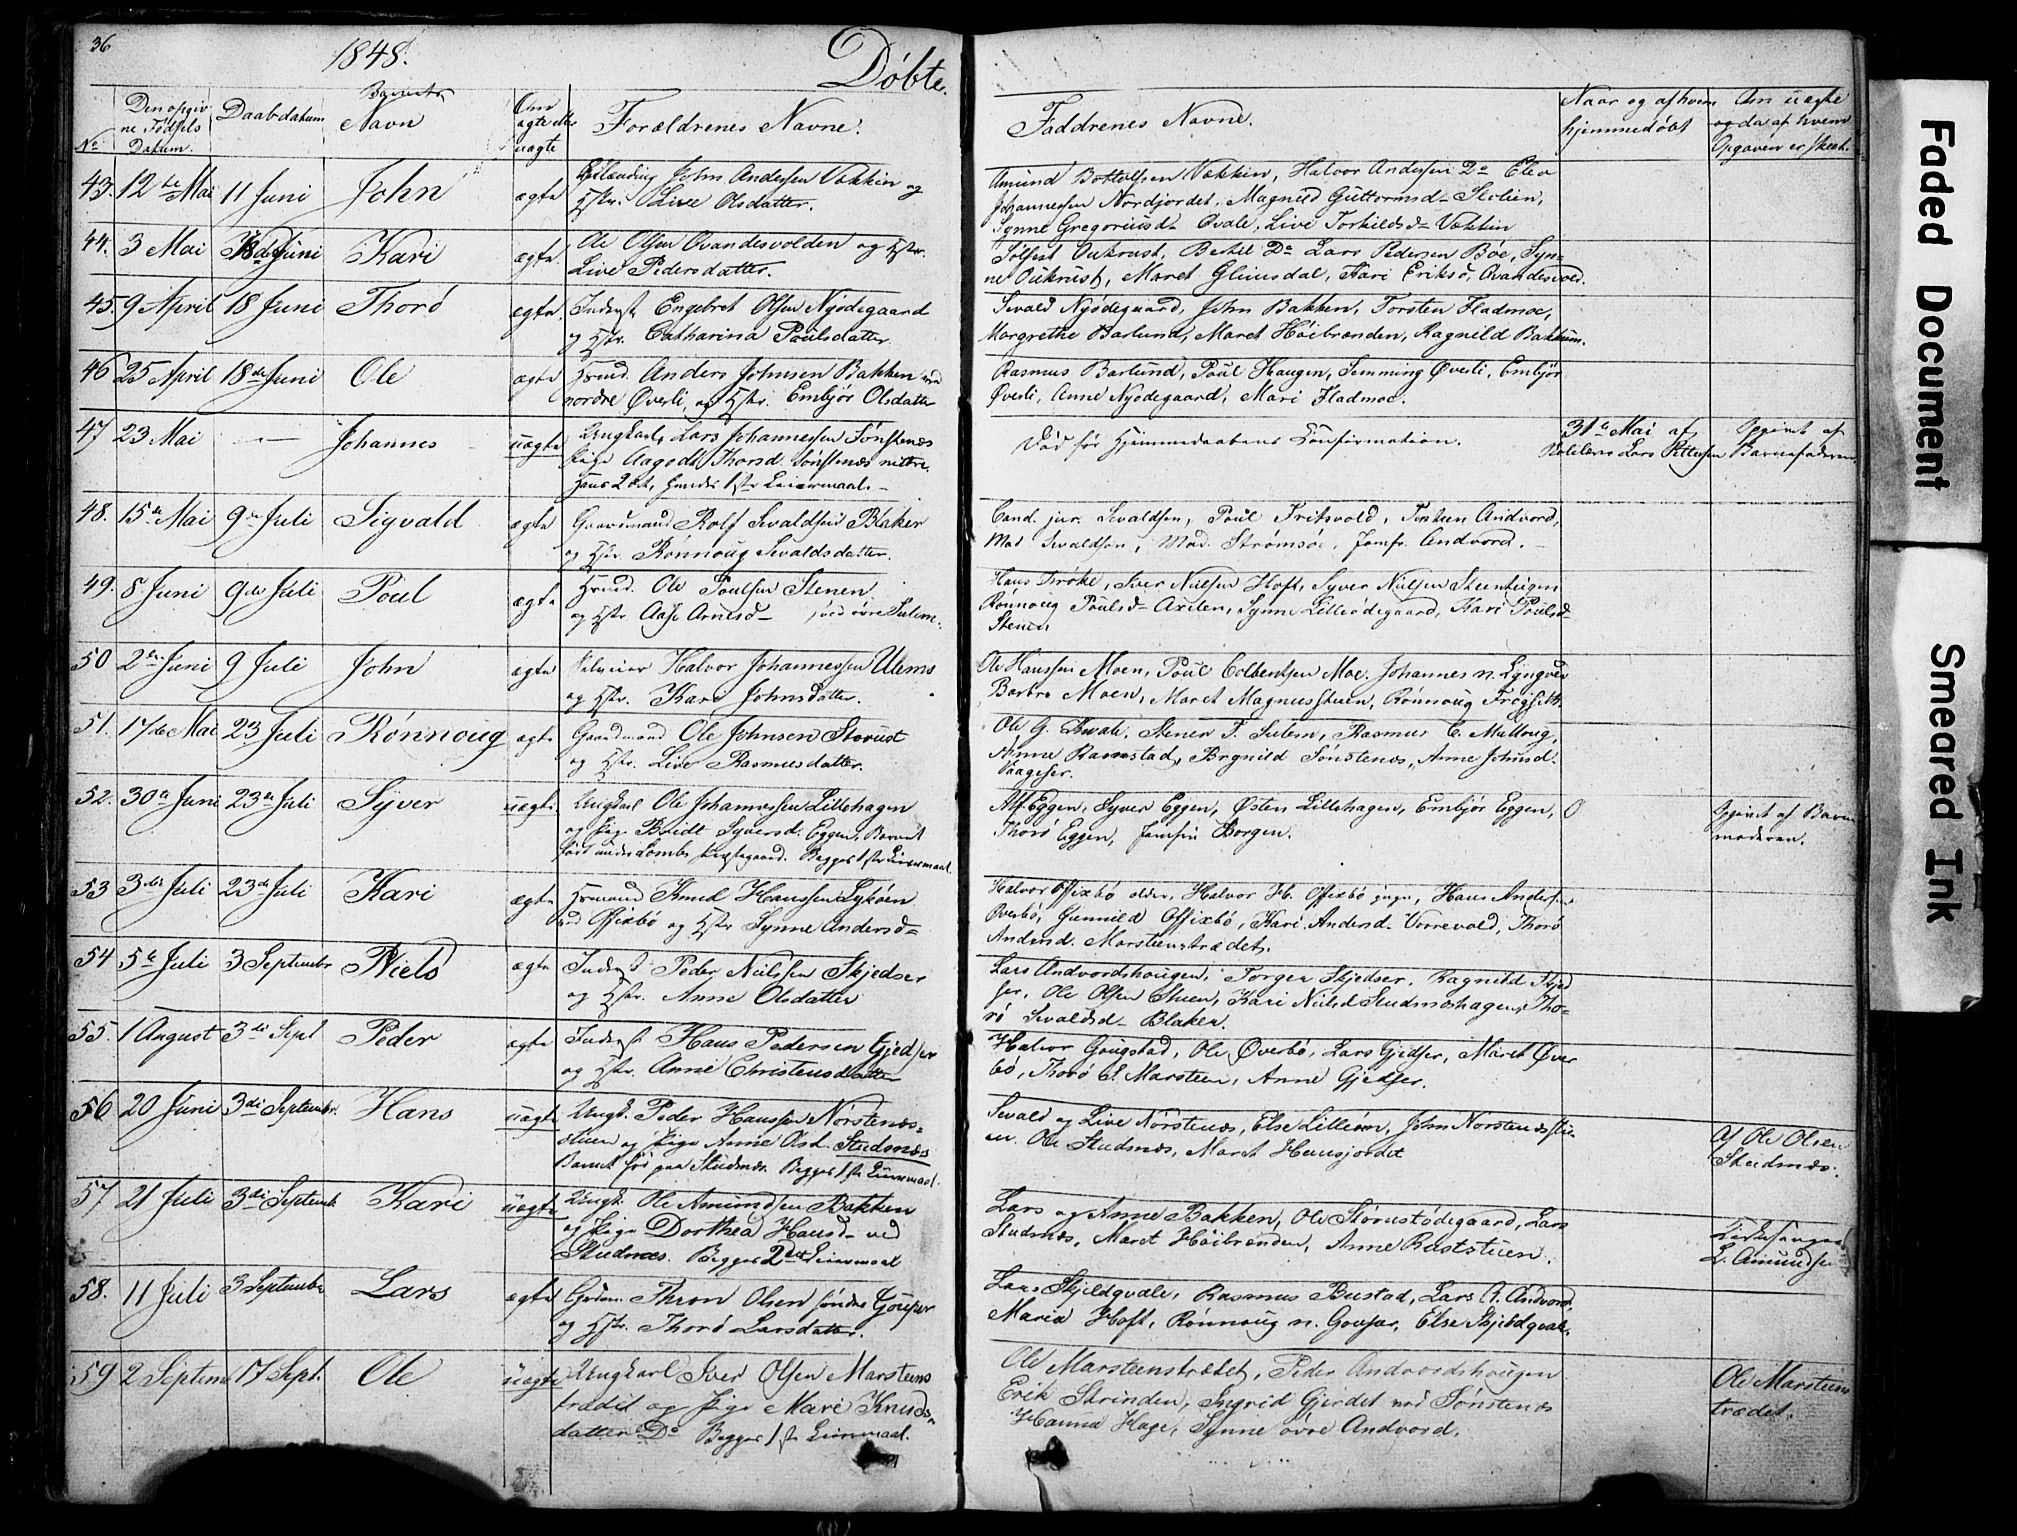 36
1848.
Døbte.
No
Den opgiv
ne Fødsels
Datum.
Daabsdatum
Barnets
Navn
Om
ægte eller
uægte
Forældrenes Navne.
Faddrenes Navne.
Naar og af hvem
hjemmedøbt
Om uægte
og da af hvem
Opgaven er skeet.
43. 12te Mai 11 Juni John ægte
John Andersen Vækkin og
Hstr. Live Olsdatter.
Amund Bottolfsen Vækkin, Halvor Andersen Do
Johannessen Nordjordet, Magnild Guttormsd Stolien,
Synne Gregoriusd Qvale, Live Torkildsd Vækkin
44. 3 Mai Juni Kari ægte
Ole Olsen Qvandesvolden og Hstr.
Live Pedersdatter.
Oukrust, Bertil Do Lars Pedersen Bøe, Syn-
ne Oukrust, Maret Glimsdal, Kari Eriksd, Qvandesvold.
45. 9 April 18 Juni Thorø ægte
Inderst Engebret Olsen Nyødegaard
og Hstr. Catharina Poulsdatter
Sevald Nyødegaard, John Bakken, Torsten Fladmoe,
Margrethe Barlund, Maret Høibrænden, Ragnild Bakkum.
46 25 April 18de Juni Ole ægte
Hsmd. Anders Johnsen Bakken ved
nordre Øverli, og Hstr. Embjør Olsdatter
Rasmus Barlund, Poul Haugen, Simming Øverli, Embjør
Øverli, Anne Nyødegaard, Mari Fladmoe.
47 23 Mai — Johannes uægte
Ungkarl Lars Johannessen Sønstenæs
Pige Aagodt Thorsd. Sønstenæs
Hans 2det, hendes 1ste Leiermaal.
Død før Hjemmedaabens Confirmation.
31te Mai af
Lars Pettersen
Opgivet af
Barnefaderen.
48. 15de Mai 9de Juli Sigvald ægte
Gaardmand Rolf Sevaldsen Blaker
og Hstr. Rønnoug Sevaldsdatter.
Cand. jur. Sevaldsen, Poul Fritsvold, Torsten Andvord,
Mad Sevaldsen, Mad. Strømsøe, Jomfr. Andvord.
49. 8 Juni 9de Juli Poul ægte
Hsmd. Ole Poulsen Stenen
og Hstr Aase Arnesd — ved øvre Sulem.
Hans, Iver Nielsen Hoft, Syver Nielsen Steenhügen
Rønnoug Poulsd Axilen, Synne Lilleødegaard, Kari Poulsd
Stenen
50 2den Juni 9 Juli John ægte
Halvor Johannessen Ulems
og Hstr. Kari Johnsdatter.
Ole Hanssen Moen, Poul Colbentsen Moe. Johannes n. Lyngved
Barbro Moen, Maret Magnusstuen, Rønnoug Frøgseth.
51. 17de Mai 23 Juli Rønnoug ægte
Gaardmand Ole Johnsen Storust
og Hstr. Live Rasmusdatter.
Ole G. Qwale, Stener T. Sulem, Rasmus C. Mulloug,
Anne Ramstad, Brynild Sønstenæs, Anne Johnsd.
52. 30te Juni 23de Juli Syver uægte
Ungkarl Ole Johannessen Lillehagen
og Pige Bridt Syversd. Eggen, Barnet
født under Lombs Præstegaard. Begges 1ste Leiermaal
Alf Eggen, Syver Eggen, Østen Lillehagen, Embjør Eggen,
Thorø Eggen, Jomfru Borgen.
O
Opgivet af Barne
moderen.
53 3die Juli 23de Juli Kari ægte
Husmand Knud Hanssen Lykøen
ved Offixbø og Hstr Synne Andersd=
Halvor Offixbø older, Halvor H. Offixbø yngre, Hans Andersen
Øverbø, Gunnild Offixbø, Kari Andersd. Vorrevold, Thorø
Andersd. Marsteenstrædet.
54 5te Juli 3 Septembr Niels ægte
Inderst Peder Nielssen Skjedser
og Hstr. Anne Olsdatter
Lars Andvordshougen, Torger Skjedser, Ragnild Skjed
ser, Ole Olsen Stuen, Kari Nielsd Studmæshagen, Tho=
rø Sevaldsd. Blaker.
55. 1 August 3die Sept Peder ægte
Inderst Hans Pedersen Gjedser
og Hstr. Anne Christensdatter
Halvor Gougstad, Ole Øverbø, Lars Gjedser, Maret Øver
bø, Thorø E. Marsteen, Anne Gjedser.
56 20 Juni 3die Septembr. Hans uægte
Ungk. Peder Hanssen Nørstenæs=
stuen og Pige Anne Olsd. Studmæs
Barnet før paa Studmæs. Begges 1ste Leiermaal.
Sevald og Live Nørstenæs, Else Lilleøm, John Norstenæsstu-
en. Ole Studmæs, Maret Hansjordet
Af Ole Olsen
Studmæs.
57 21 Juli 3die Septemb. Kari uægte
Ungk. Ole Amundsen Bakken
og Pige Dorthea Hansd. ved
Studmæs. Begges 2det Leiermaal
Lars og Anne Bakken, Ole Størustødegaard, Lars
Studmæs, Maret Høibrænden, Anne Ruststuen.
Kirkesanger
L. Amundsen
58. 11 Juli 3 Septembr Lars ægte
Gdm. Thron Olsen søndre Gouper
og Hstr. Thorø Larsdatter.
Lars Skjeldqvale, Rasmus Bustad, Lars A. Andvord,
Maria Hoft, Rønnoug n. Gouper, Else Skjeldqvale.
59 2 Septem 17 Sept. Ole uægte
Ungkarl Iver Olsen Marsteens
trædet og Pige Mari Knuds-
datter Do Begges 1ste Leiermaal.
Ole Marsteenstrædet, Peder Andvordshougen
Erik Strinden, Ingrid Gjerdet ved Sønstenæs
Hanna Hage, Synne øvre Andvord.
Ole Marsteens
trædet.
Faded Document
Smeared Ink